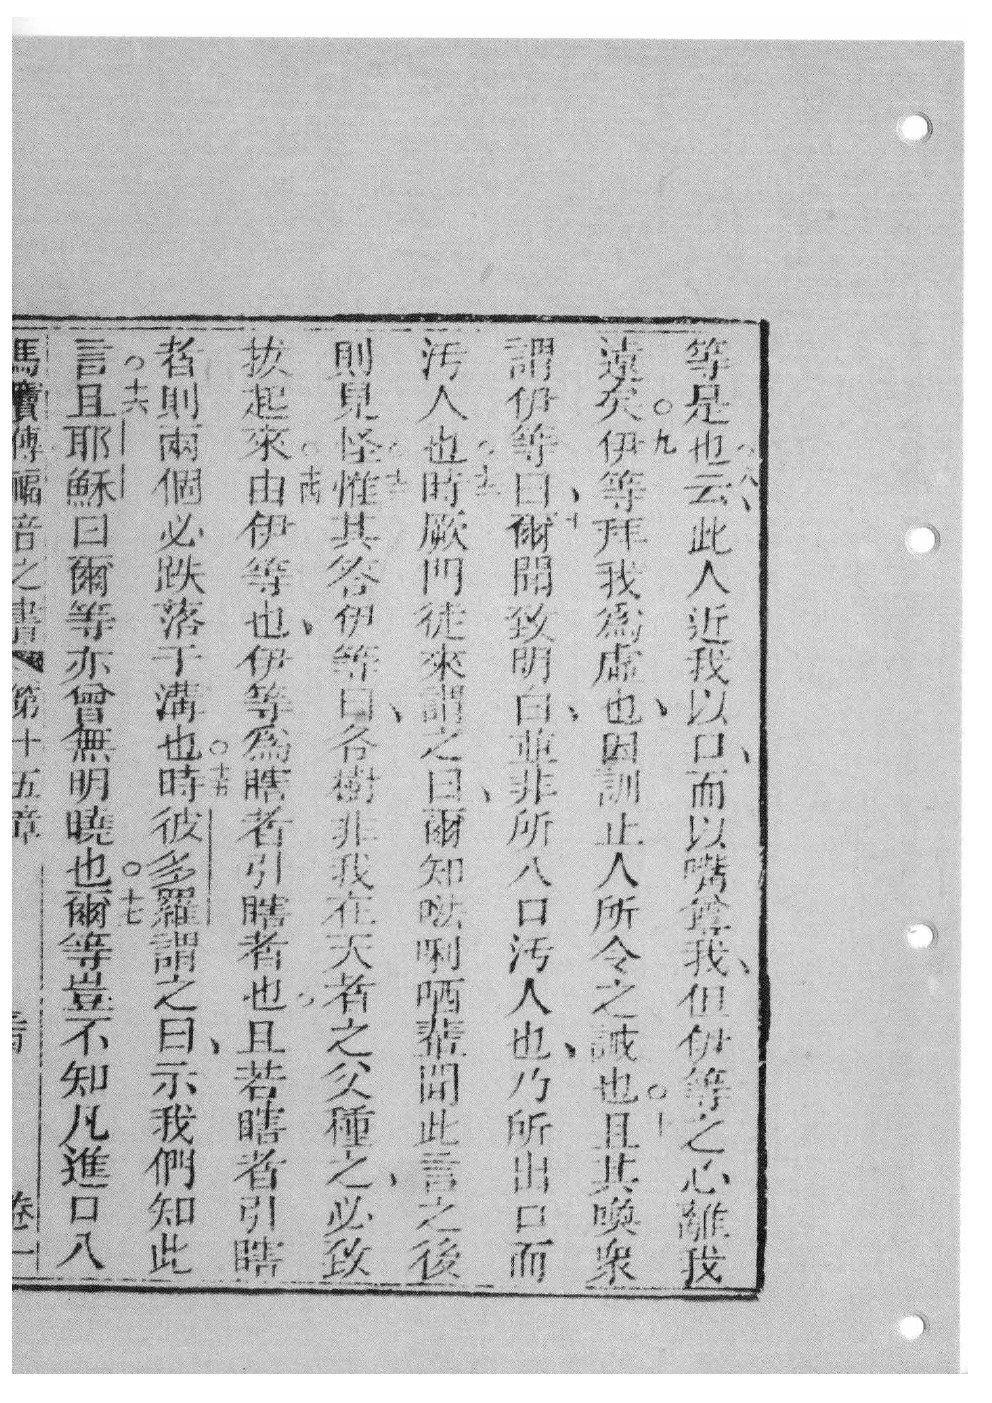 等是也○八云、此人近我以口、而以嘴尊我、但伊等之心離我
遠矣○九伊等拜我爲虛也、因訓止人所令之誡也○十且其喚衆
謂伊等曰、十一爾聞致明白、並非所入口汚人也、乃所出口而
汚人也○十二時厥門徒來謂之曰、爾知𠵽唎哂輩聞此言之後
則見怪○十三惟其答伊等曰、各樹非我在天者之父種之、必致
拔起來○十四由伊等也、伊等爲瞎者引瞎者也。且若瞎者引瞎
者則兩個必跌落于溝也○十五時彼多羅謂之曰、示我們知此
言○十六且耶穌曰爾等亦曾無明曉也○十七爾等豈不知凡進口入
馬竇傳福音之書 第十五章 卷一